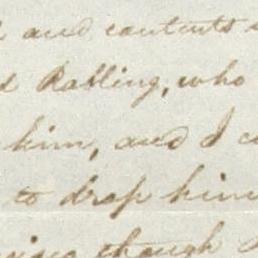 and contents
Rabling, who
him, and I
to drop him
though